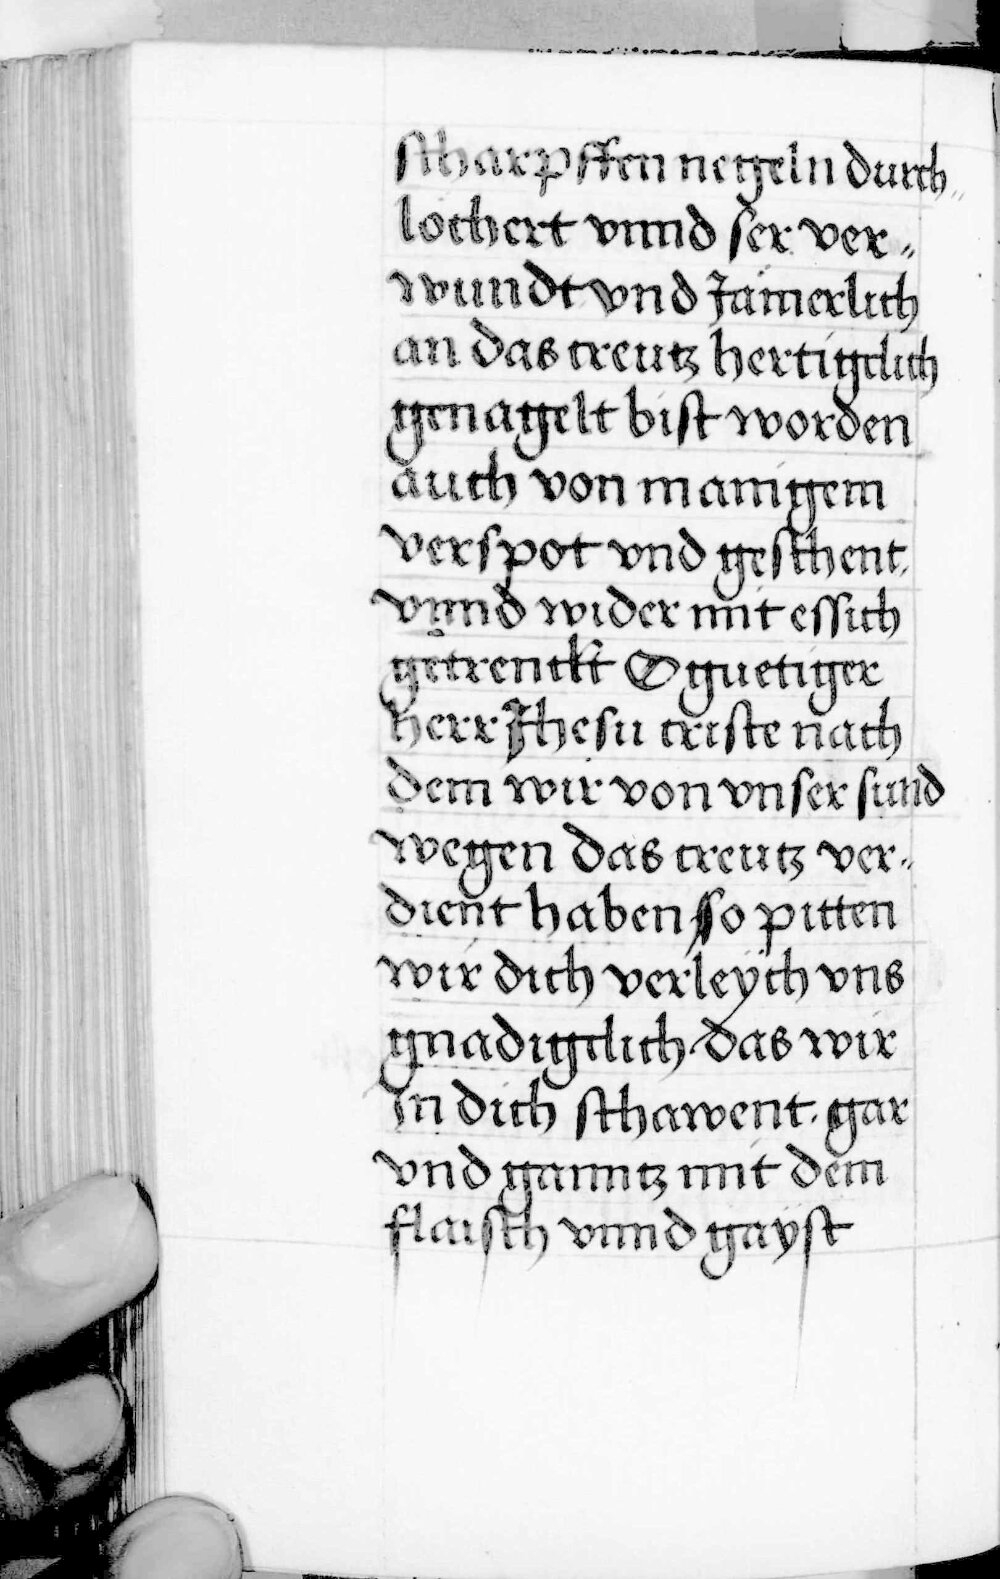 scharpffen negeln durch„
lochert vnnd ser ver„
wundt vnd Jamerlich
an das creutz hertigclich
genagelt bist worden
auch von manigem
verspot vnd geschent.
vnnd wider mit essich
getrenckt O guetiger
herr Jhesu criste nach
dem wir von vnser sund
wegen das creutz ver„
dient haben so pitten
wir dich verleych vns
gnadigclich das wir
In dich schawent. gar
vnd ganntz mit dem
flaisch vnnd gayst